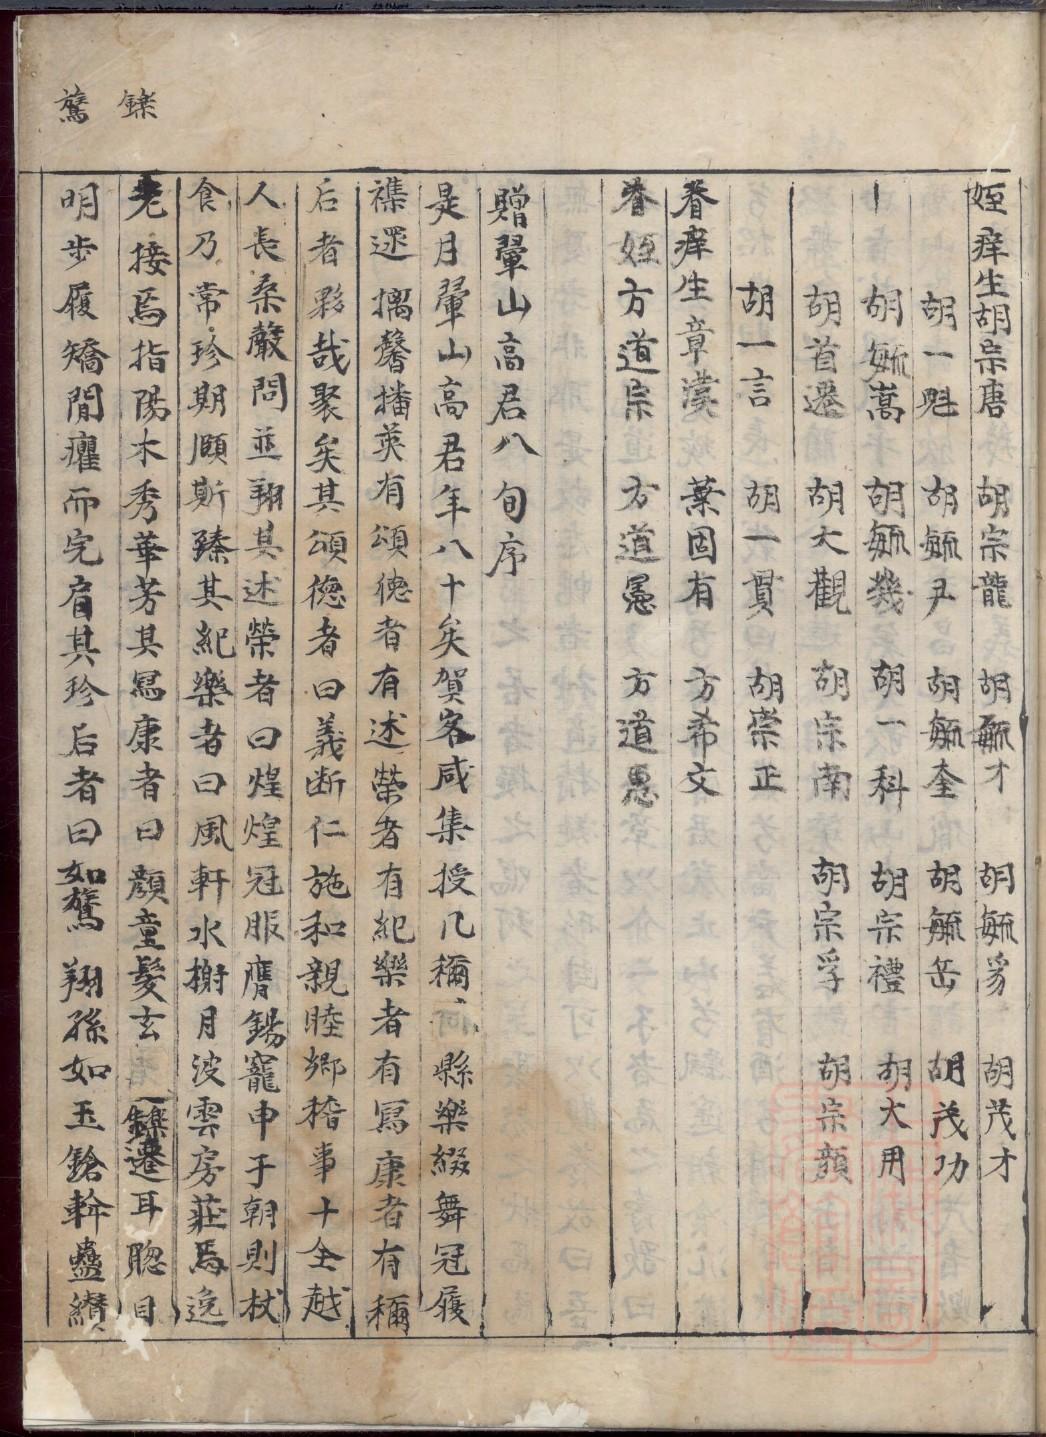 姪庠生胡宗唐 胡宗龍 胡毓才 胡毓豸 胡茂才
胡一魁 胡毓尹 胡毓奎 胡毓岳 胡茂功
胡毓嵩 胡毓幾 胡一科 胡宗禮 胡大用
胡首遷 胡大觀 胡宗南 胡宗孚 胡宗顏
胡一言 胡一貫 胡崇正
眷庠生章漢 葉固有 方希文
眷姪方道宗 方道愚 方道愚
贈翬山高君八旬序
是月翬山高君年八十矣賀客咸集授几稱 縣樂綴舞冠履
襍遝摛馨播英有頌德者有述榮者有紀樂者有寫康者有稱
后者夥哉聚矣其頌德者曰義断仁施和親睦鄉稽事十全越
人長桑嚴問並翔其述榮者曰煌煌冠服膺錫寵申于朝則杖
食乃常珍期頤斯臻其紀樂者曰風軒水榭月波雲房莊焉逸
老接焉指陽木秀華芳其寫康者曰顏童髮玄鑠遷耳聰目
明步履矯閒癯而完眉其珍后者曰如鶩翔孫如玉鎗幹蠱纘
鑠
鶩